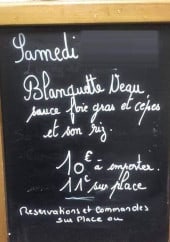 Samedi
Blanquette Veau,
sauce foie gras et cèpes
et son riz.
10€ à emporter.
11€ sur place
Reservations et Commandes
sur Place ou